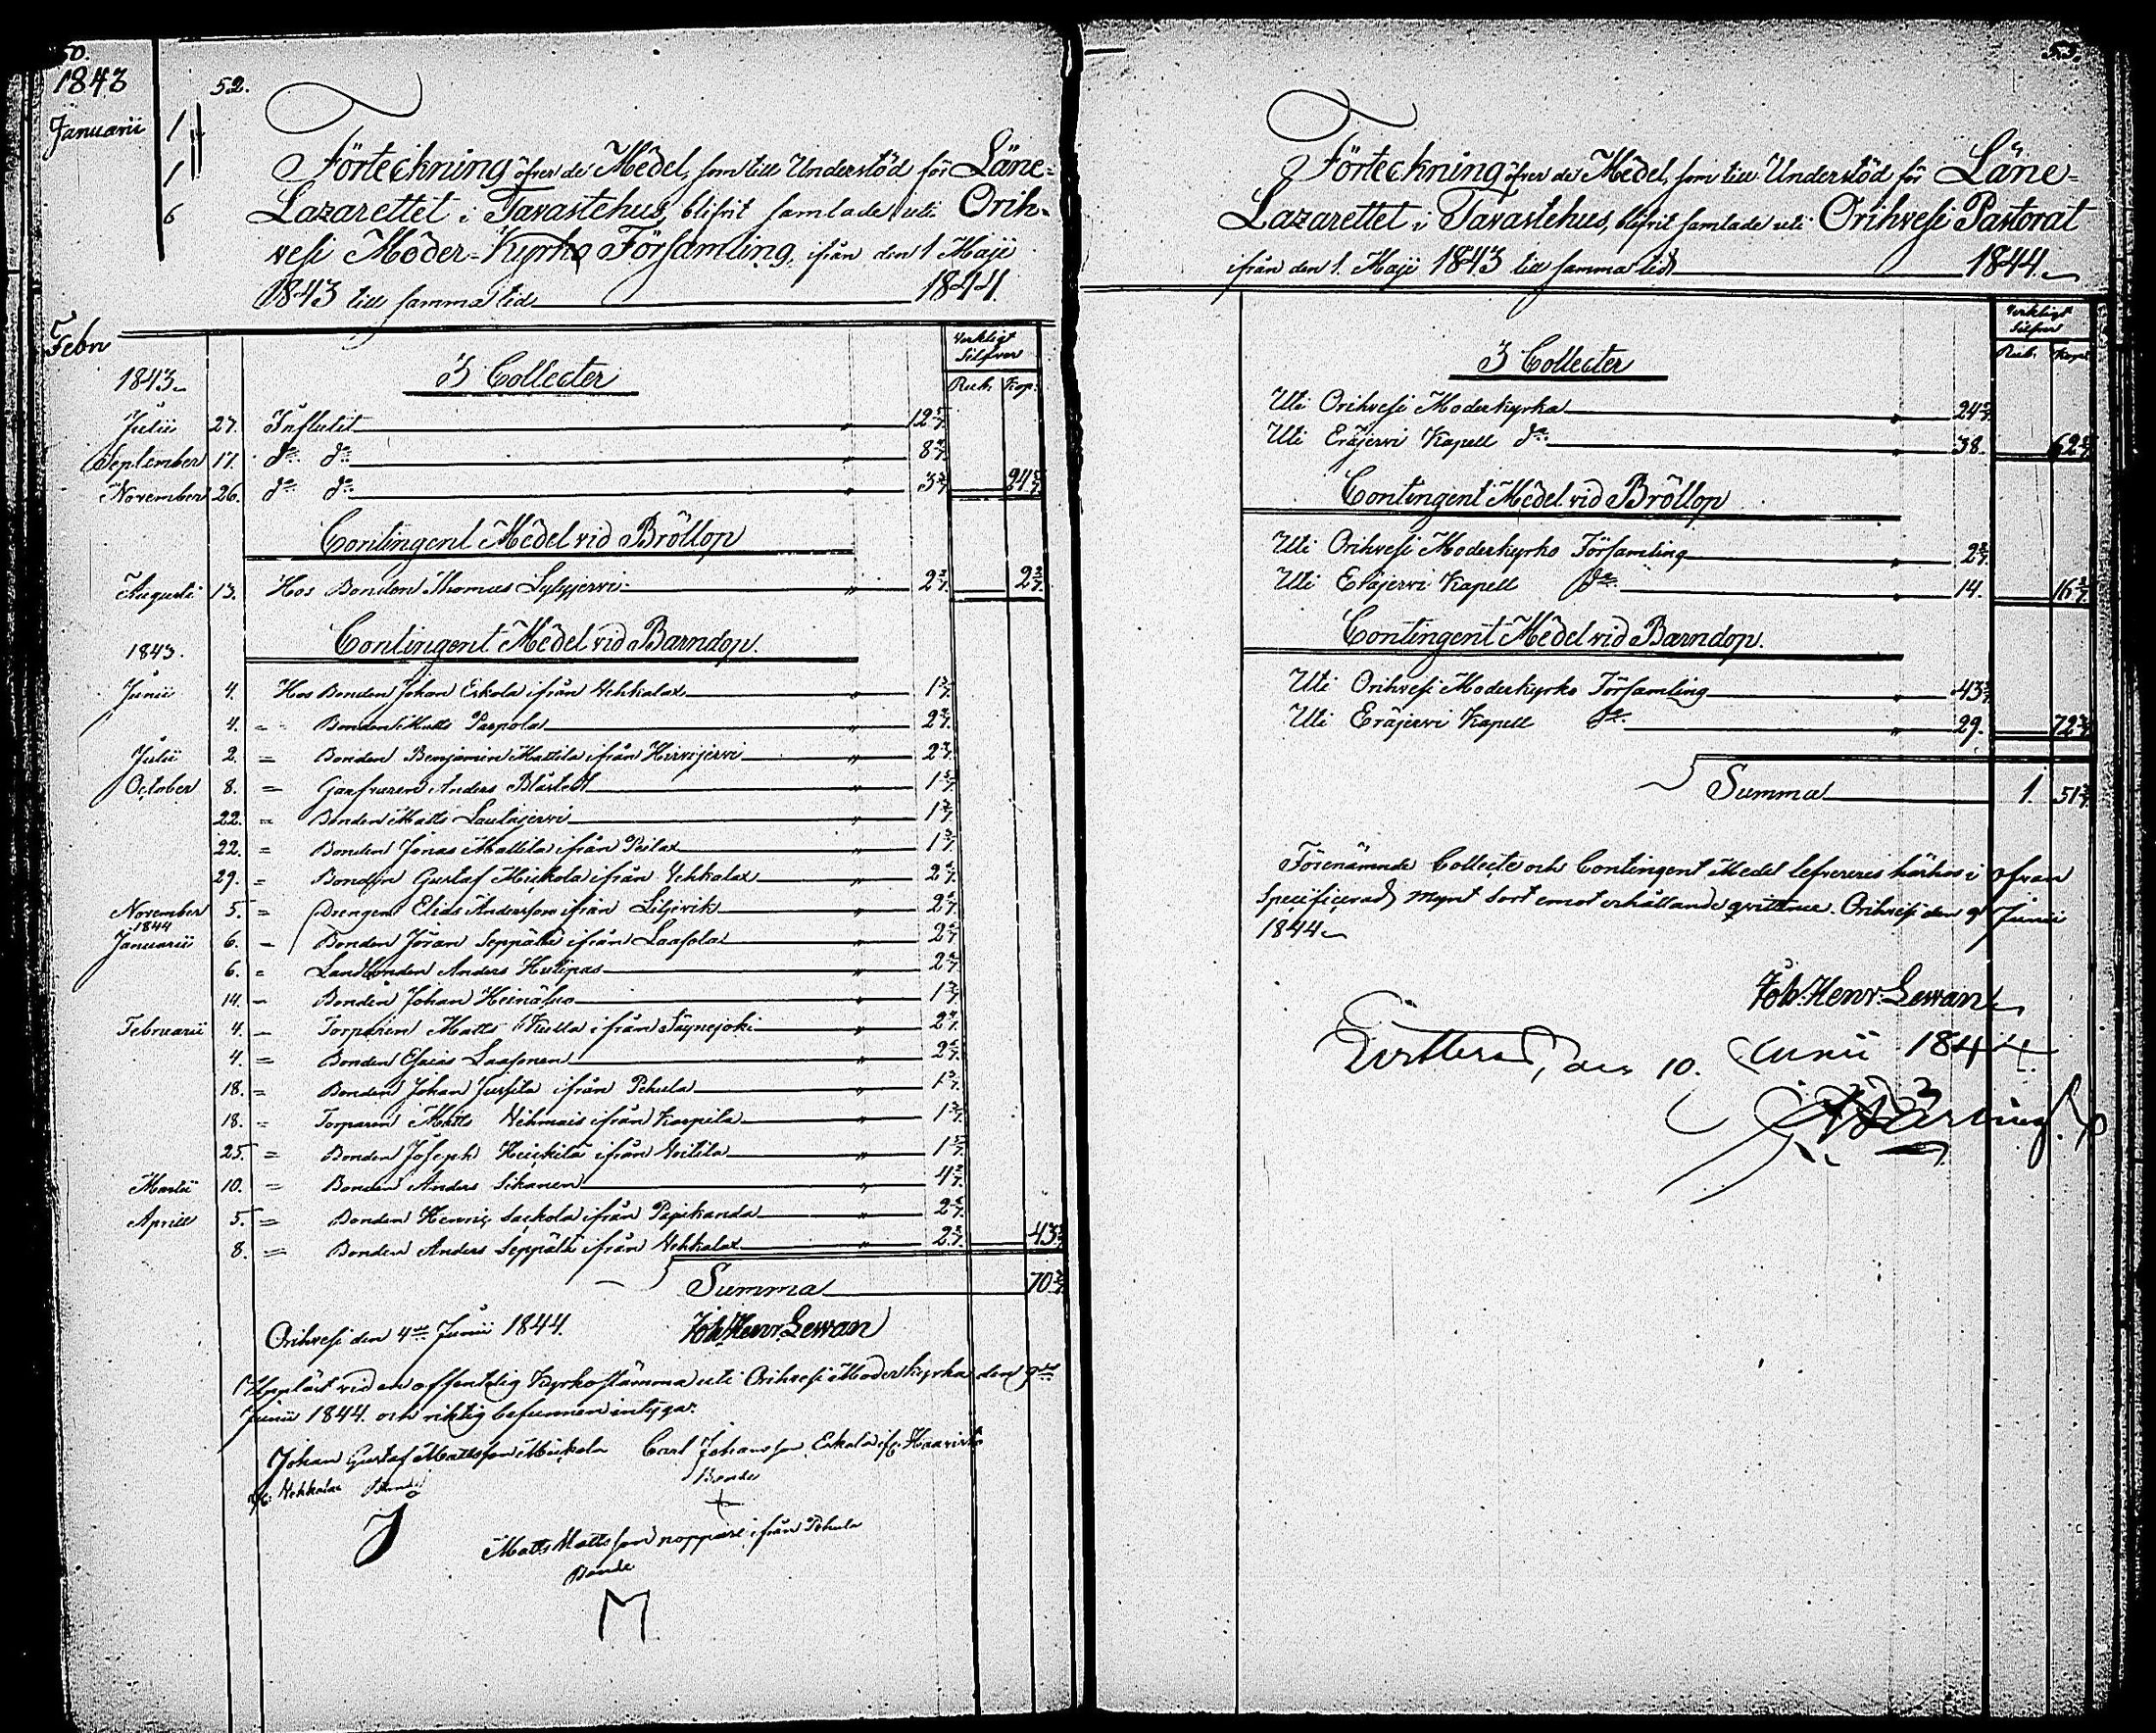 50.
1843
Januarii 1
1
6
Febr
52.
Förteckning öfver de Medel, som till Understöd för Läne-
Lazarettet i Tavastehus, blifvit samlade uti Orih-
vesi Moder-Kyrko Församling, ifrån den 1 Maji
1843 till samma tid 1844.
Verkligt
Silfver
Rub. Kop.
1843.
3 Collecter
Julii 27. Influtit " 12 5/7
September 17. do do " 8 2/7
November 26. do do " 3 5/7 24 5/7
Contingent Medel vid Bröllop
Augusti 13. Hos Bonden Thomas Sylvjervi " 2 2/7. 2 2/7.
Contingent Medel vid Barndop.
1843.
Junii 4. Hos Bonden Johan Eskola ifrån Vehkalax " 1 5/7
4. = Bonden Matts Parpola " 2 2/7.
Julii 2. = Bonden Benjamin Mattila ifrån Hirvijervi " 2 2/7
October 8. = Garfvaren Anders Blästedt " 1 5/7
22. = Bonden Matts Laulajervi " 1 5/7
22. = Bonden Jonas Mattila ifrån Peilax " 1 5/7
29. = Bonden Gustaf Mickola ifrån Vehkalax " 2 2/7
November 5. = Drengen Elias Andersson ifrån Liljevik " 2 2/7
1844
Januarii 6. = Bonden Jöran Seppälä ifrån Laasola " 2 2/7
6. = Landbonden Anders Hutipas " 2 2/7
14. = Bonden Johan Heinäho " 1 5/7
Februarii 4. = Torparen Matts Kulla ifrån Säynejoki " 2 2/7
4. = Bonden Esaias Laasonen " 2 2/7
18. = Bonden Johan Jussila ifrån Pehula " 1 5/7
18. = Torparen Matts Vihmais ifrån Karpila " 1 5/7
25. = Bonden Joseph Heickilä ifrån Voitila " 1 5/7
Martii 10. = Bonden Anders Sikanen " 4 2/7
Aprill 5. = Bonden Henric Sackola ifrån Papikanda " 2 2/7
8. = Bonden Anders Seppälä ifrån Vehkalax " 2 2/7. 43 3/7
Summa 70 3/7
Orihvesi den 4de Junii 1844. Joh. Henr. Lewan
Upläst vid en offentelig Kyrkostämma uti Orihvesi Moderkyrka den 9de
Junii 1844. och riktig befunnen intyga:
Johan Gustaf Mattsson Mickola Carl Johansson Eskola if: Haavisto
if: Vehkalax Bonde Bonde
J +
Matts Mattsson noppari ifrån Pehula
Bonde
M
53.
Förteckning öfver de Medel, som till Understöd för Läne-
Lazarettet i Tavastehus, blifvit samlade uti Orihvesi Pastorat
ifrån den 1. Maji 1843 till samma tid 1844.
Verkligt
Silfver
Rub. Kop.
3 Collecter
Uti Orihvesi Moderkyrka " 24 5/7
Uti Eräjervi Kapell do " 38. 62 5/7
Contingent Medel vid Bröllop
Uti Orihvesi Moderkyrko Församling " 2 2/7.
Uti Eräjervi Kapell do " 14. 16 2/7
Contingent Medel vid Barndop.
Uti Orihvesi Moderkyrko Församling " 43 3/7
Uti Eräjervi Kapell do " 29. 72 3/7
Summa 1. 51 3/7.
Förenämnde Collecte och Contingent Medel lefvereres härhos i ofvan
specificerad mynt sort emot erhållande qvittence. Orihvesi den 9 Junii
1844.
Joh. Henr. Lewan
Qvitteras, den 10. Junii 1844